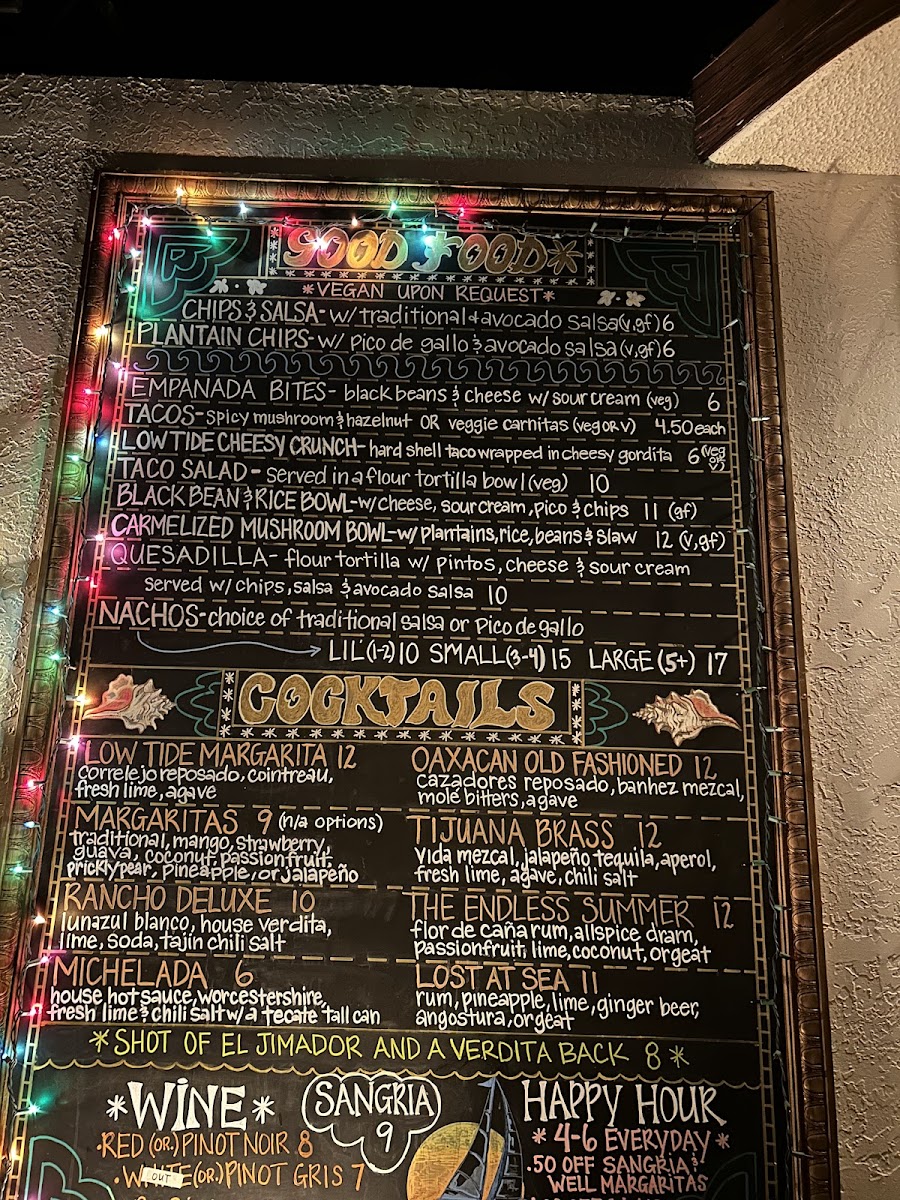 GOOD FOOD*
*VEGAN UPON REQUEST*
CHIPS & SALSA- w/ traditional & avocado salsa (v,gf) 6
PLANTAIN CHIPS- w/ pico de gallo & avocado salsa (v,gf) 6
EMPANADA BITES- black beans & cheese w/ sour cream (veg) 6
TACOS- spicy mushroom & hazelnut OR veggie carnitas (veg OR V) 4.50 each
LOW TIDE CHEESY CRUNCH- hard shell taco wrapped in cheesy gordita 6 (veg OR V)
TACO SALAD- served in a flour tortilla bowl (veg) 10
BLACK BEAN & RICE BOWL- w/ cheese, sour cream, pico & chips 11 (gf)
CARMELIZED MUSHROOM BOWL- w/ plantains, rice, beans & slaw 12 (V,gf)
QUESADILLA- flour tortilla w/ pintos, cheese & sour cream
served w/ chips, salsa & avocado salsa 10
NACHOS- choice of traditional salsa or pico de gallo
LIL' (1-2) 10 SMALL (3-4) 15 LARGE (5+) 17
COCKTAILS
LOW TIDE MARGARITA 12
correlejo reposado, cointreau,
fresh lime, agave
MARGARITAS 9 (n/a options)
traditional, mango, strawberry,
guava, coconut, passionfruit,
pricklypear, pineapple, or jalapeño
RANCHO DELUXE 10
lunazul blanco, house verdita,
lime, soda, tajin chili salt
MICHELADA 6
house hot sauce, worcestershire,
fresh lime & chili salt w/ a tecate tall can
OAXACAN OLD FASHIONED 12
cazadores reposado, banhez mezcal,
mole bitters, agave
TIJUANA BRASS 12
vida mezcal, jalapeño tequila, aperol,
fresh lime, agave, chili salt
THE ENDLESS SUMMER 12
flor de caña rum, allspice dram,
passionfruit, lime, coconut, orgeat
LOST AT SEA 11
rum, pineapple, lime, ginger beer,
angostura, orgeat
*SHOT OF EL JIMADOR AND A VERDITA BACK 8*
*WINE*
·RED (OR) PINOT NOIR 8
OUT
(OR) PINOT GRIS 7
SANGRIA
9
HAPPY HOUR
*4-6 EVERYDAY*
·.50 OFF SANGRIA &
WELL MARGARITAS